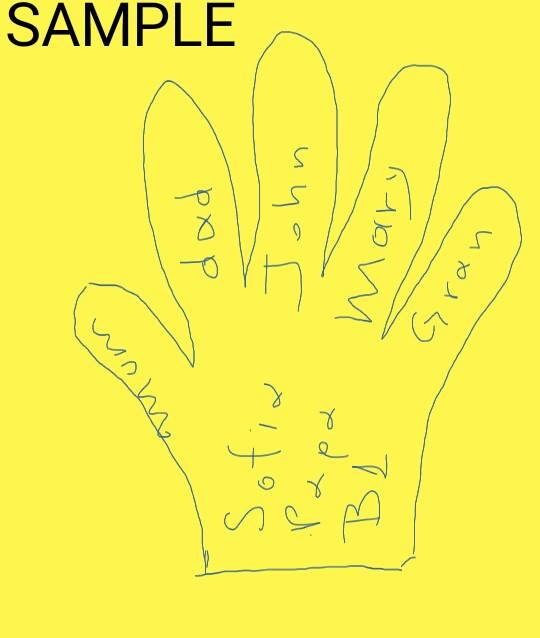 SAMPLE
mum
dad
John
Mary
Gran
Sofia